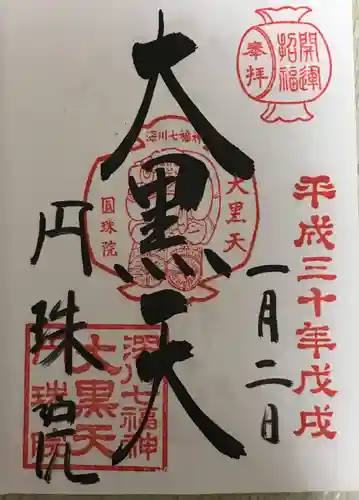 開運
招福
奉拝
平成三十年戊戌
一月二日
深川七福神
大黒天
圓珠院
大黒天
深川七福神
大黒天
円珠院